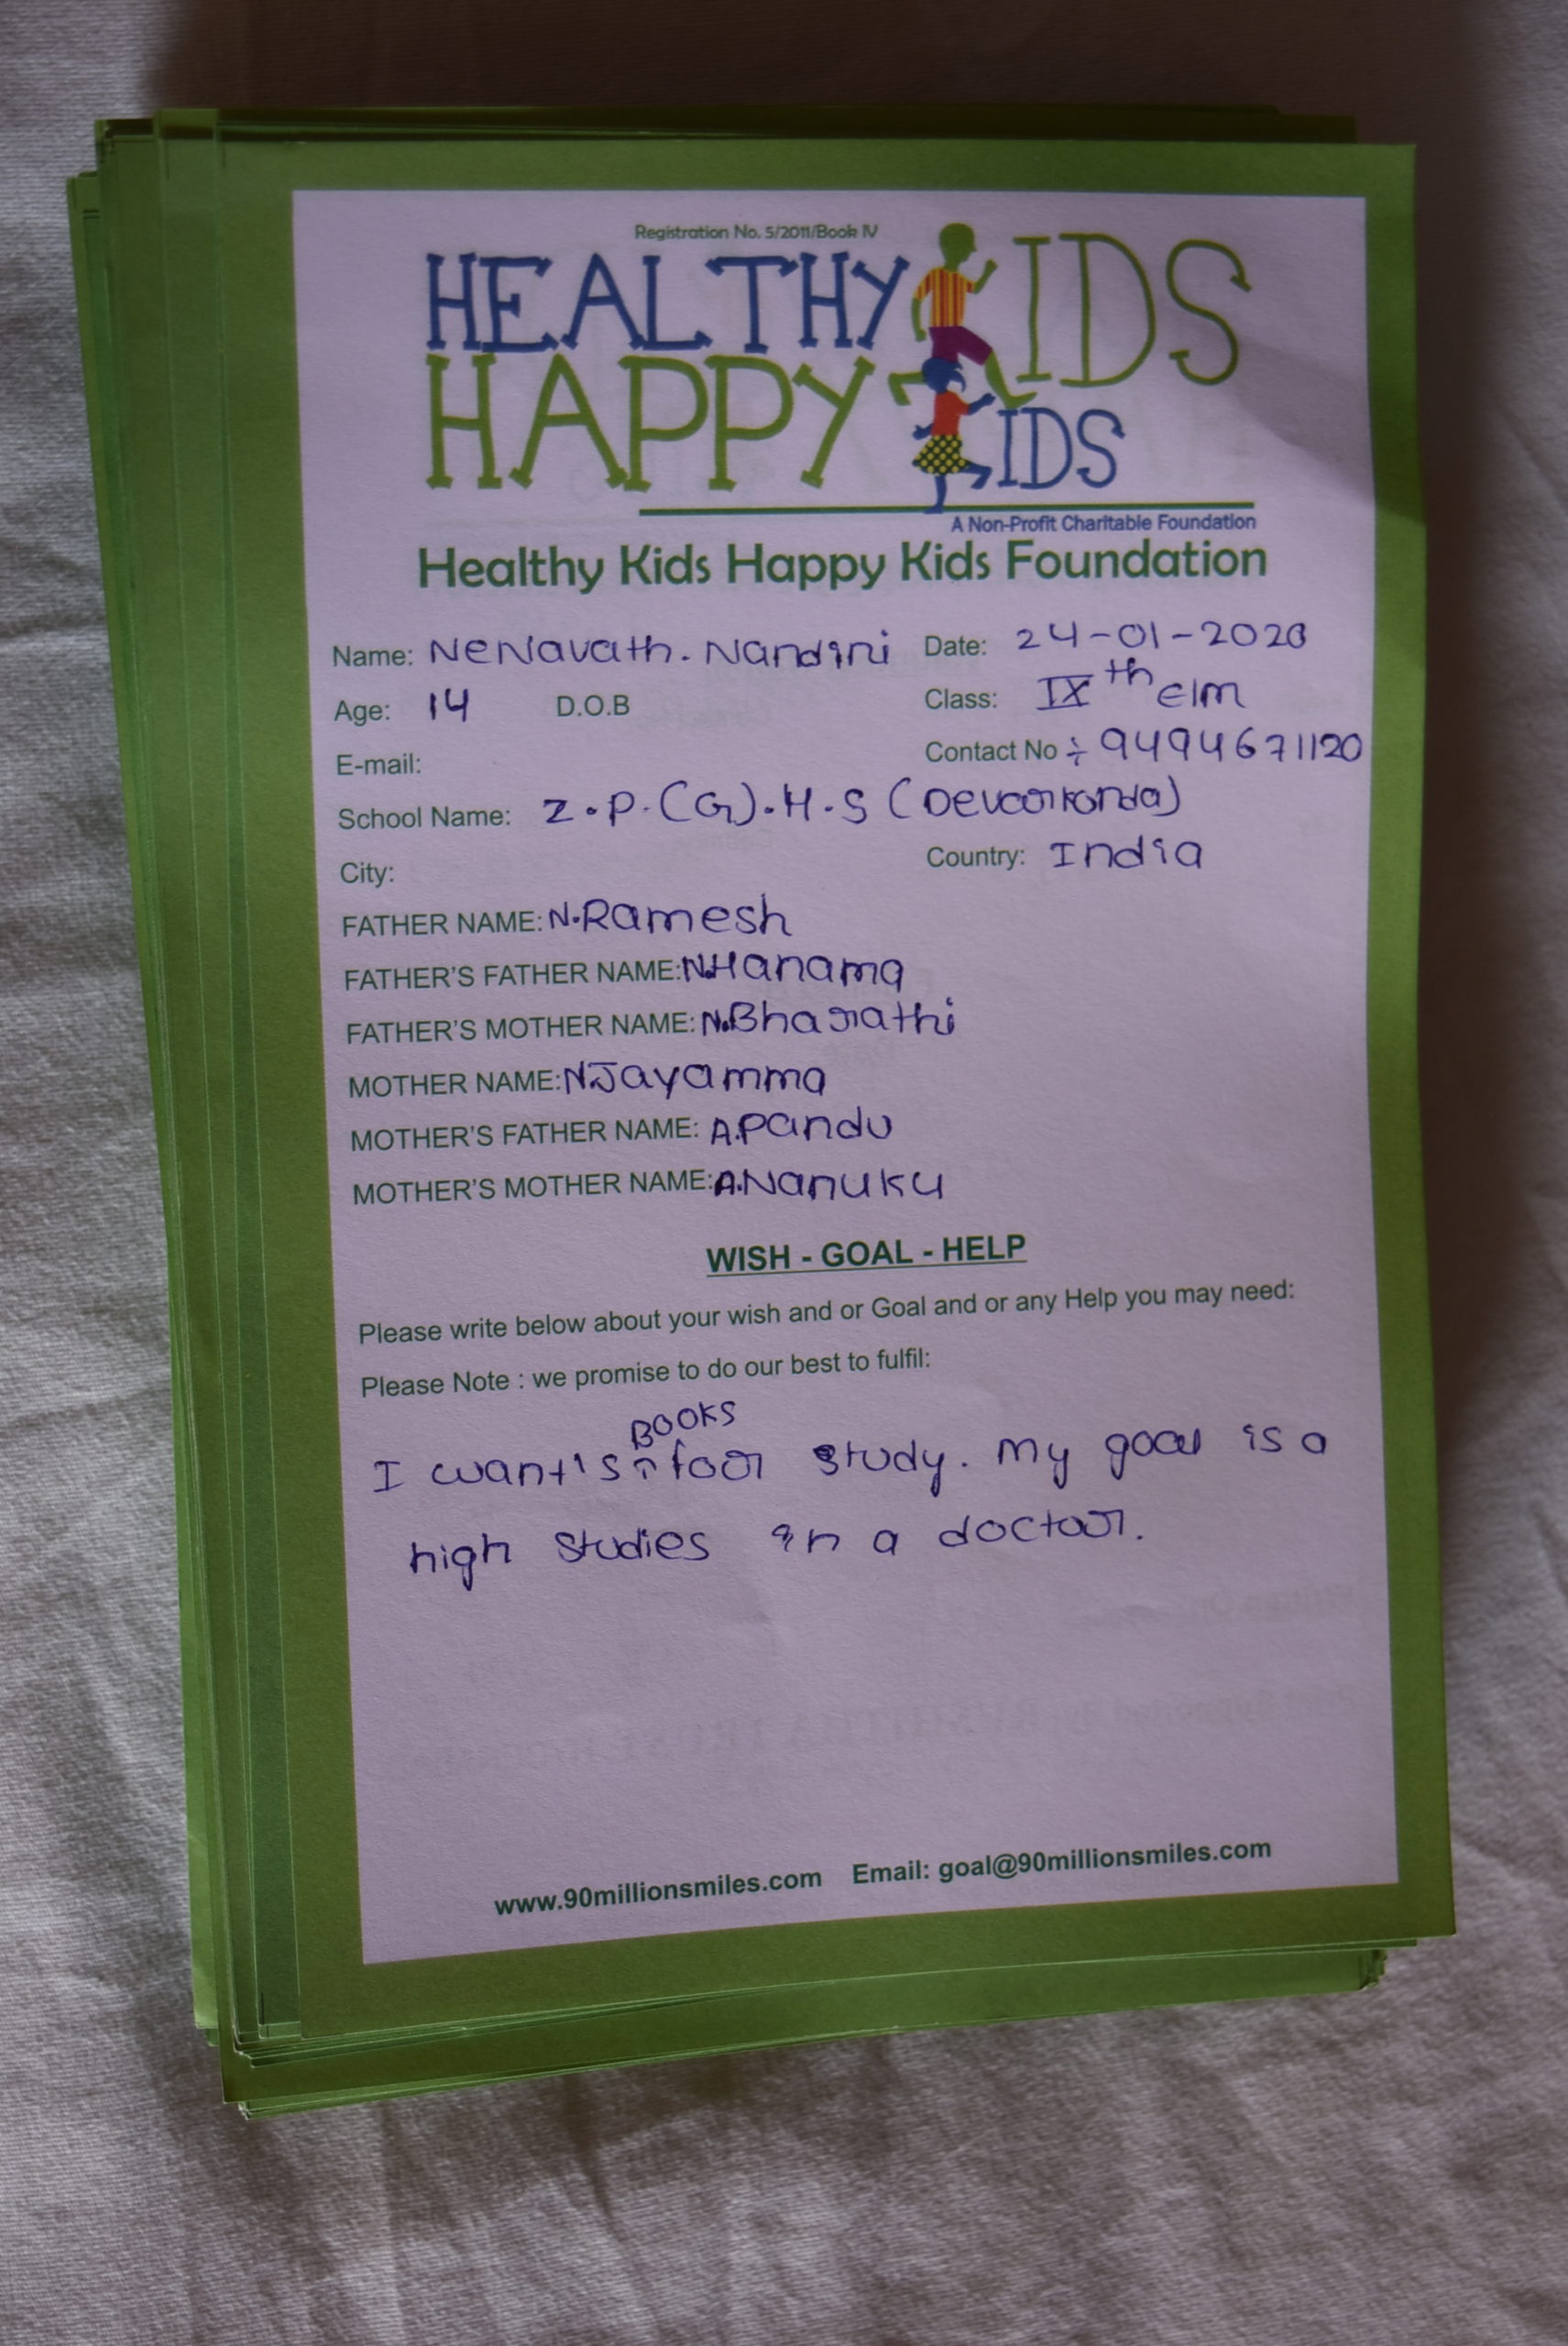 Registration No. 5/2011/Book IV
HEALTHY KIDS
HAPPY KIDS
A Non-Profit Charitable Foundation
Healthy Kids Happy Kids Foundation
Name: NeNavath. Nandini Date: 24-01-2020
Age: 14 D.O.B Class: IXth e/m
E-mail: Contact No ÷ 9494671120
School Name: Z.P.(G).H.S (Devcorkonda)
City: Country: India
FATHER NAME: N.Ramesh
FATHER'S FATHER NAME: N.Hanama
FATHER'S MOTHER NAME: N.Bharathi
MOTHER NAME: N.Jayamma
MOTHER'S FATHER NAME: A.Pandu
MOTHER'S MOTHER NAME: A.Nanuku
WISH - GOAL - HELP
Please write below about your wish and or Goal and or any Help you may need:
Please Note : we promise to do our best to fulfil:
BOOKS
I want's foor study. My goal is a
high studies in a doctoor.
www.90millionsmiles.com Email: goal@90millionsmiles.com